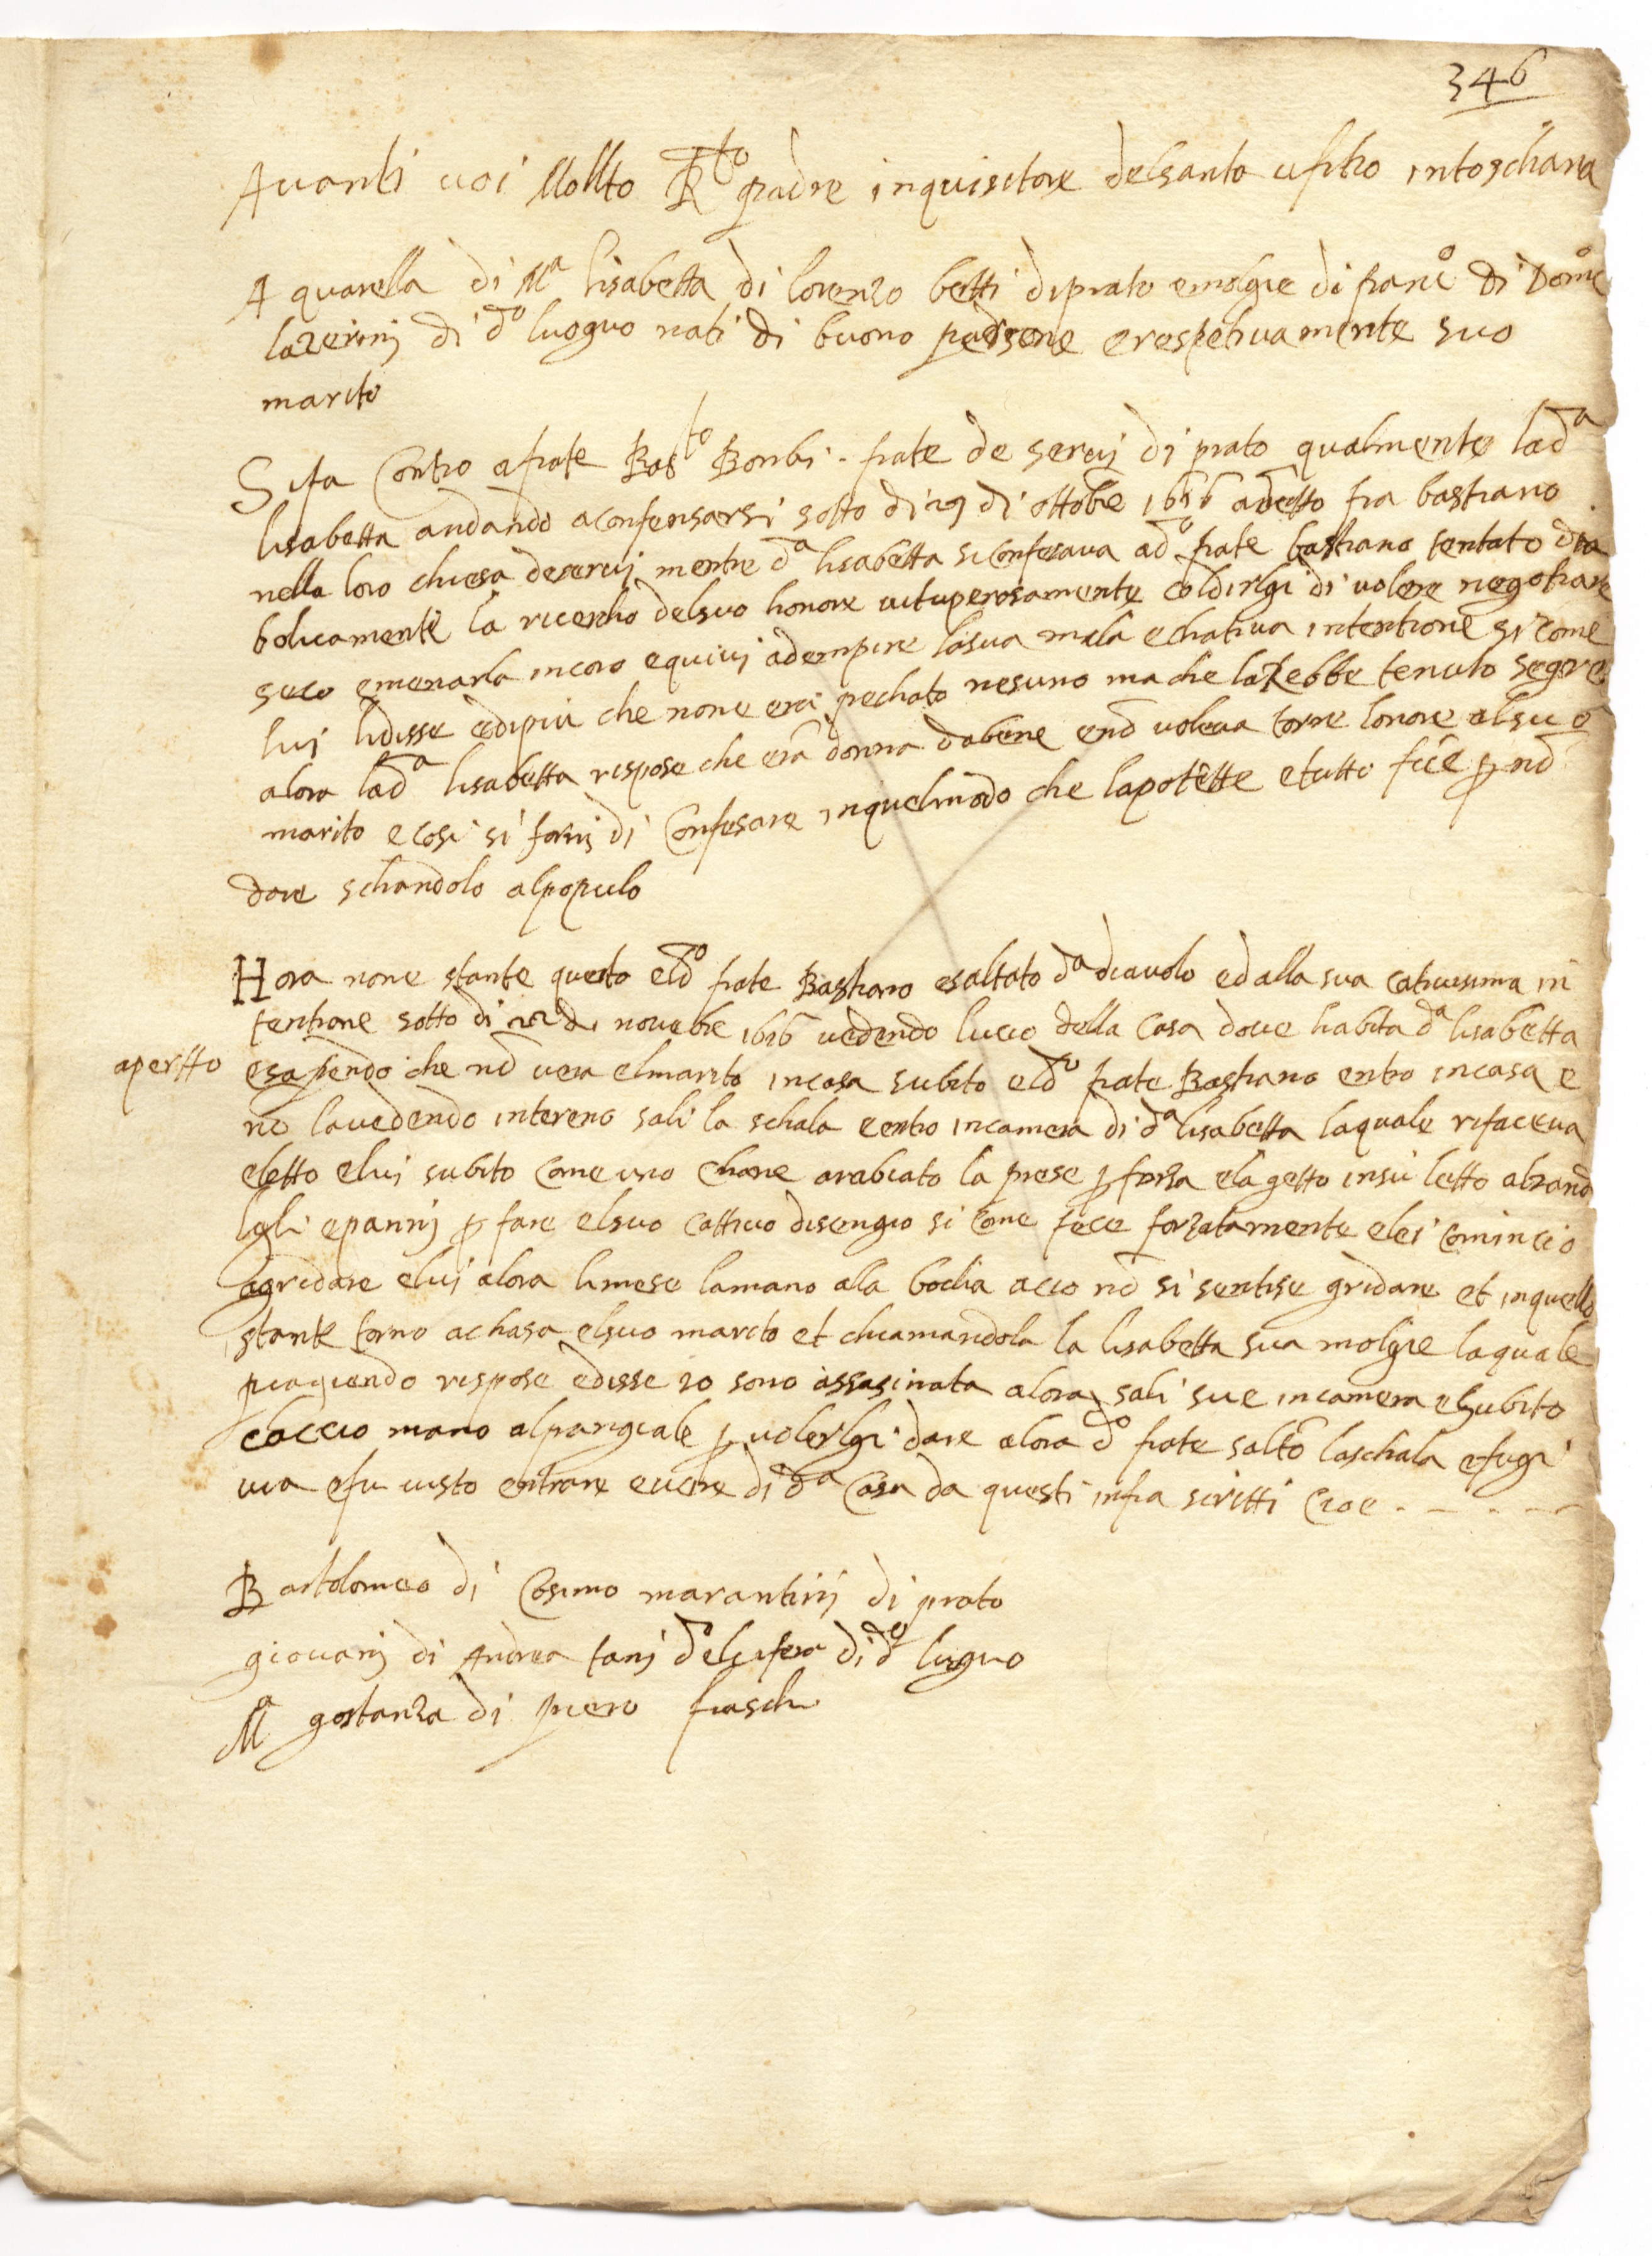 346
Avanti voi Mollto R^to padre inquisitore delsanto ufitio intoschana
A quarella di M^a lisabetta di lorenzo betti diprato emolgie di franc^o di Dom^co
lazerinj di d^o luoguo nati di buono erespetivamente suo
marito
Si fa Contro afrate Bast^o Bonbi - frate de servj di prato qualmente lad^a
lisabetta andando aconfensarsi sotto di 29 di ottobre 1616 adetto fra bastiano
nella loro chiesa deservj mentre d^a lisabetta siconfesava ad^o frate bastiano tentato dia
bolicamente la ricercho delsuo honore vituperosamente coldirlgi di volere negotiare
seco emenarla incoro equivj adempire lasua mala echativa intentione si come
luj lidisse edipiu che none era pechato nesuno ma che larebbe tenuto segre
alora lad^a lisabetta rispose che era donna dabene enō voleva torre lonore alsuo
marito ecosi si fornj di Confesare inquelmodo che lapotette etutto fece p nō
dare schandolo alpopulo
Hora none stante questo eld^o frate Bastiano esaltato d^a diavolo edalla sua cativisima in
tentione sotto di 22 di novebre 1616 vedendo luscio della Casa dove habita d^a lisabetta
apertto esapendo che nō vera elmarito incasa subito eld^o frate Bastiano entro incasa e
nō lavedendo intereno sali la schala eentro incamera di d^a lisabetta laquale rifaceva
eletto elui subito Come uno Chane arabiato la prese p forza elagetto insu letto alzand
logli epannj p fare elsuo cattivo disengio si Come fece forzatamente elei Comincio
agridare eluj alora limese lamano alla bocha acio nō si sentise gridare et inquello
stante torno achasa elsuo marito et chiamandola la lisabetta sua molgie laquale
piagiendo rispose edisse io sono assasinata alora sali sue incamera esubito
caccio mano alpangiale p volerlgi dare alora d^o frate salto laschala efugi
via efu visto entrare euscire di d^a Casa da questi infra scritti Cioe . - - . - -
Bartolomeo di Cosimo marantinj di prato
giovanj di Andrea tanj di d^o luoguo
M^a gostanza di piero fiaschi